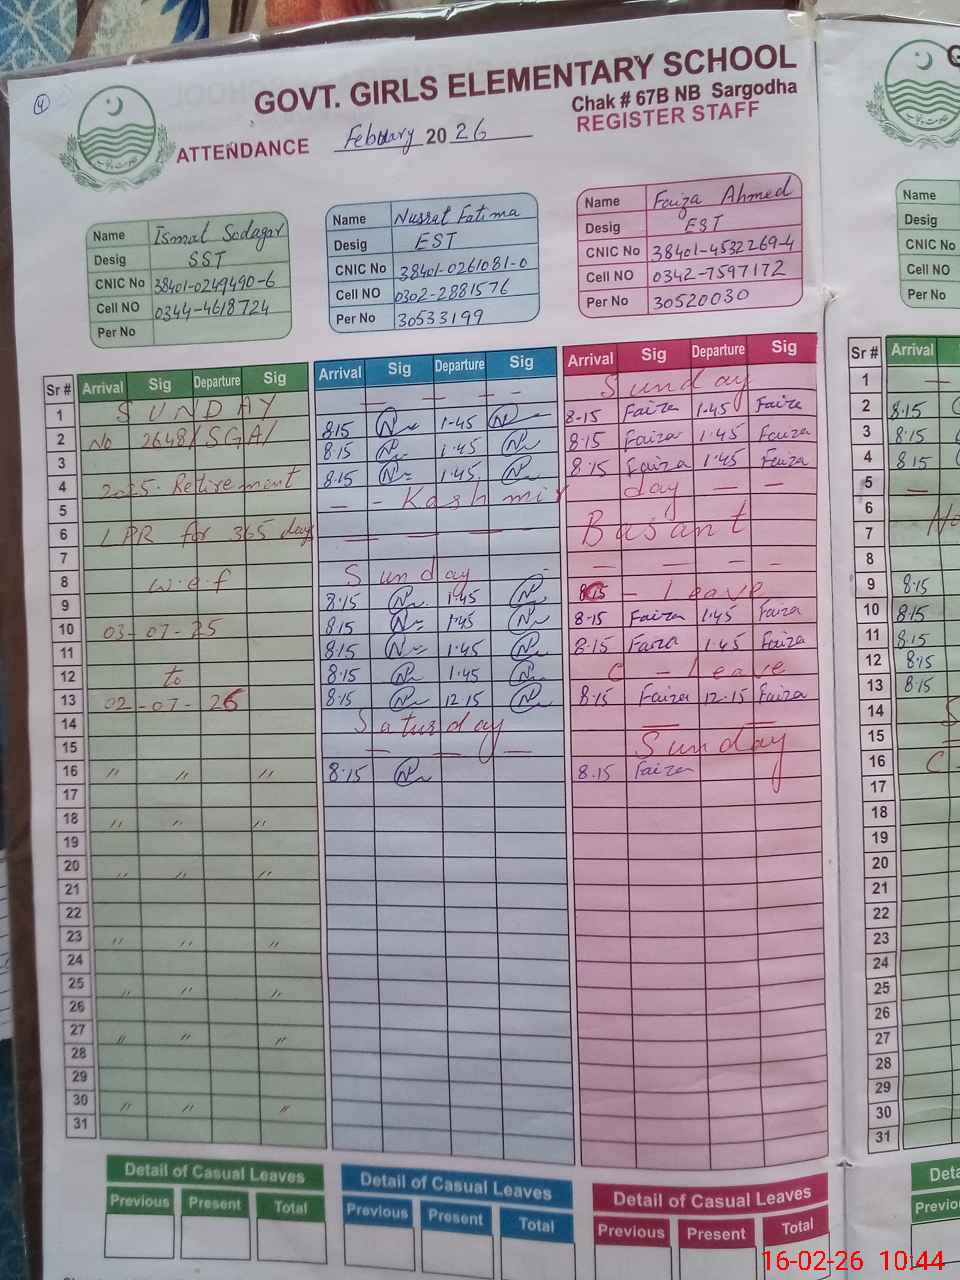 4
GOVT. GIRLS ELEMENTARY SCHOOL
Chak # 67B NB Sargodha
ATTENDANCE February 2026 REGISTER STAFF
حکومت پنجاب
Name Ismat Sodagar
Desig SST
CNIC No 38401-0249490-6
Cell NO 0344-4618724
Per No
Name Nusrat Fatima
Desig EST
CNIC No 38401-0261081-0
Cell NO 0302-2881576
Per No 30533199
Name Faiza Ahmed
Desig EST
CNIC No 38401-4532269-4
Cell NO 0342-7597172
Per No 30520030
Name
Desig
CNIC No
Cell NO
Per No
Sr # Arrival Sig Departure Sig Arrival Sig Departure Sig Arrival Sig Departure Sig Sr # Arrival
1 SUNDAY — — — - Sunday 1 —
2 No 2648/SGA/ 8:15 N 1.45 N 8-15 Faiza 1.45 Faiza 2 8:15
3 8:15 N 1.45 N 8:15 Faiza 1.45 Faiza 3 8:15
4 2025. Retirement 8:15 N 1.45 N 8:15 Faiza 1.45 Faiza 4 8:15
5 — - Kashmir day — — 5 —
6 LPR for 365 days — — — — Basant 6
7 — — — - 7
8 w.e.f Sunday - 8
9 8:15 N 1.45 N 8:15 - Leave 9 8:15
10 03-07-25 8:15 N 1.45 N 8-15 Faiza 1.45 Faiza 10 8:15
11 8:15 N 1.45 N 8:15 Faiza 1.45 Faiza 11 8:15
12 to 8:15 N 1.45 N C - leave 12 8:15
13 02-07-26 8:15 N 12.15 N 8:15 Faiza 12.15 Faiza 13 8:15
14 Saturday — — 14 S
15 — — — Sunday 15
16 " " " 8:15 N 8.15 Faiza 16 C
17 17
18 " " " 18
19 19
20 " " " 20
21 21
22 22
23 " " " 23
24 24
25 " " " 25
26 26
27 " " " 27
28 28
29 29
30 " " " 30
31 31
Detail of Casual Leaves
Previous Present Total
Detail of Casual Leaves
Previous Present Total
Detail of Casual Leaves
Previous Present Total
16-02-26 10:44